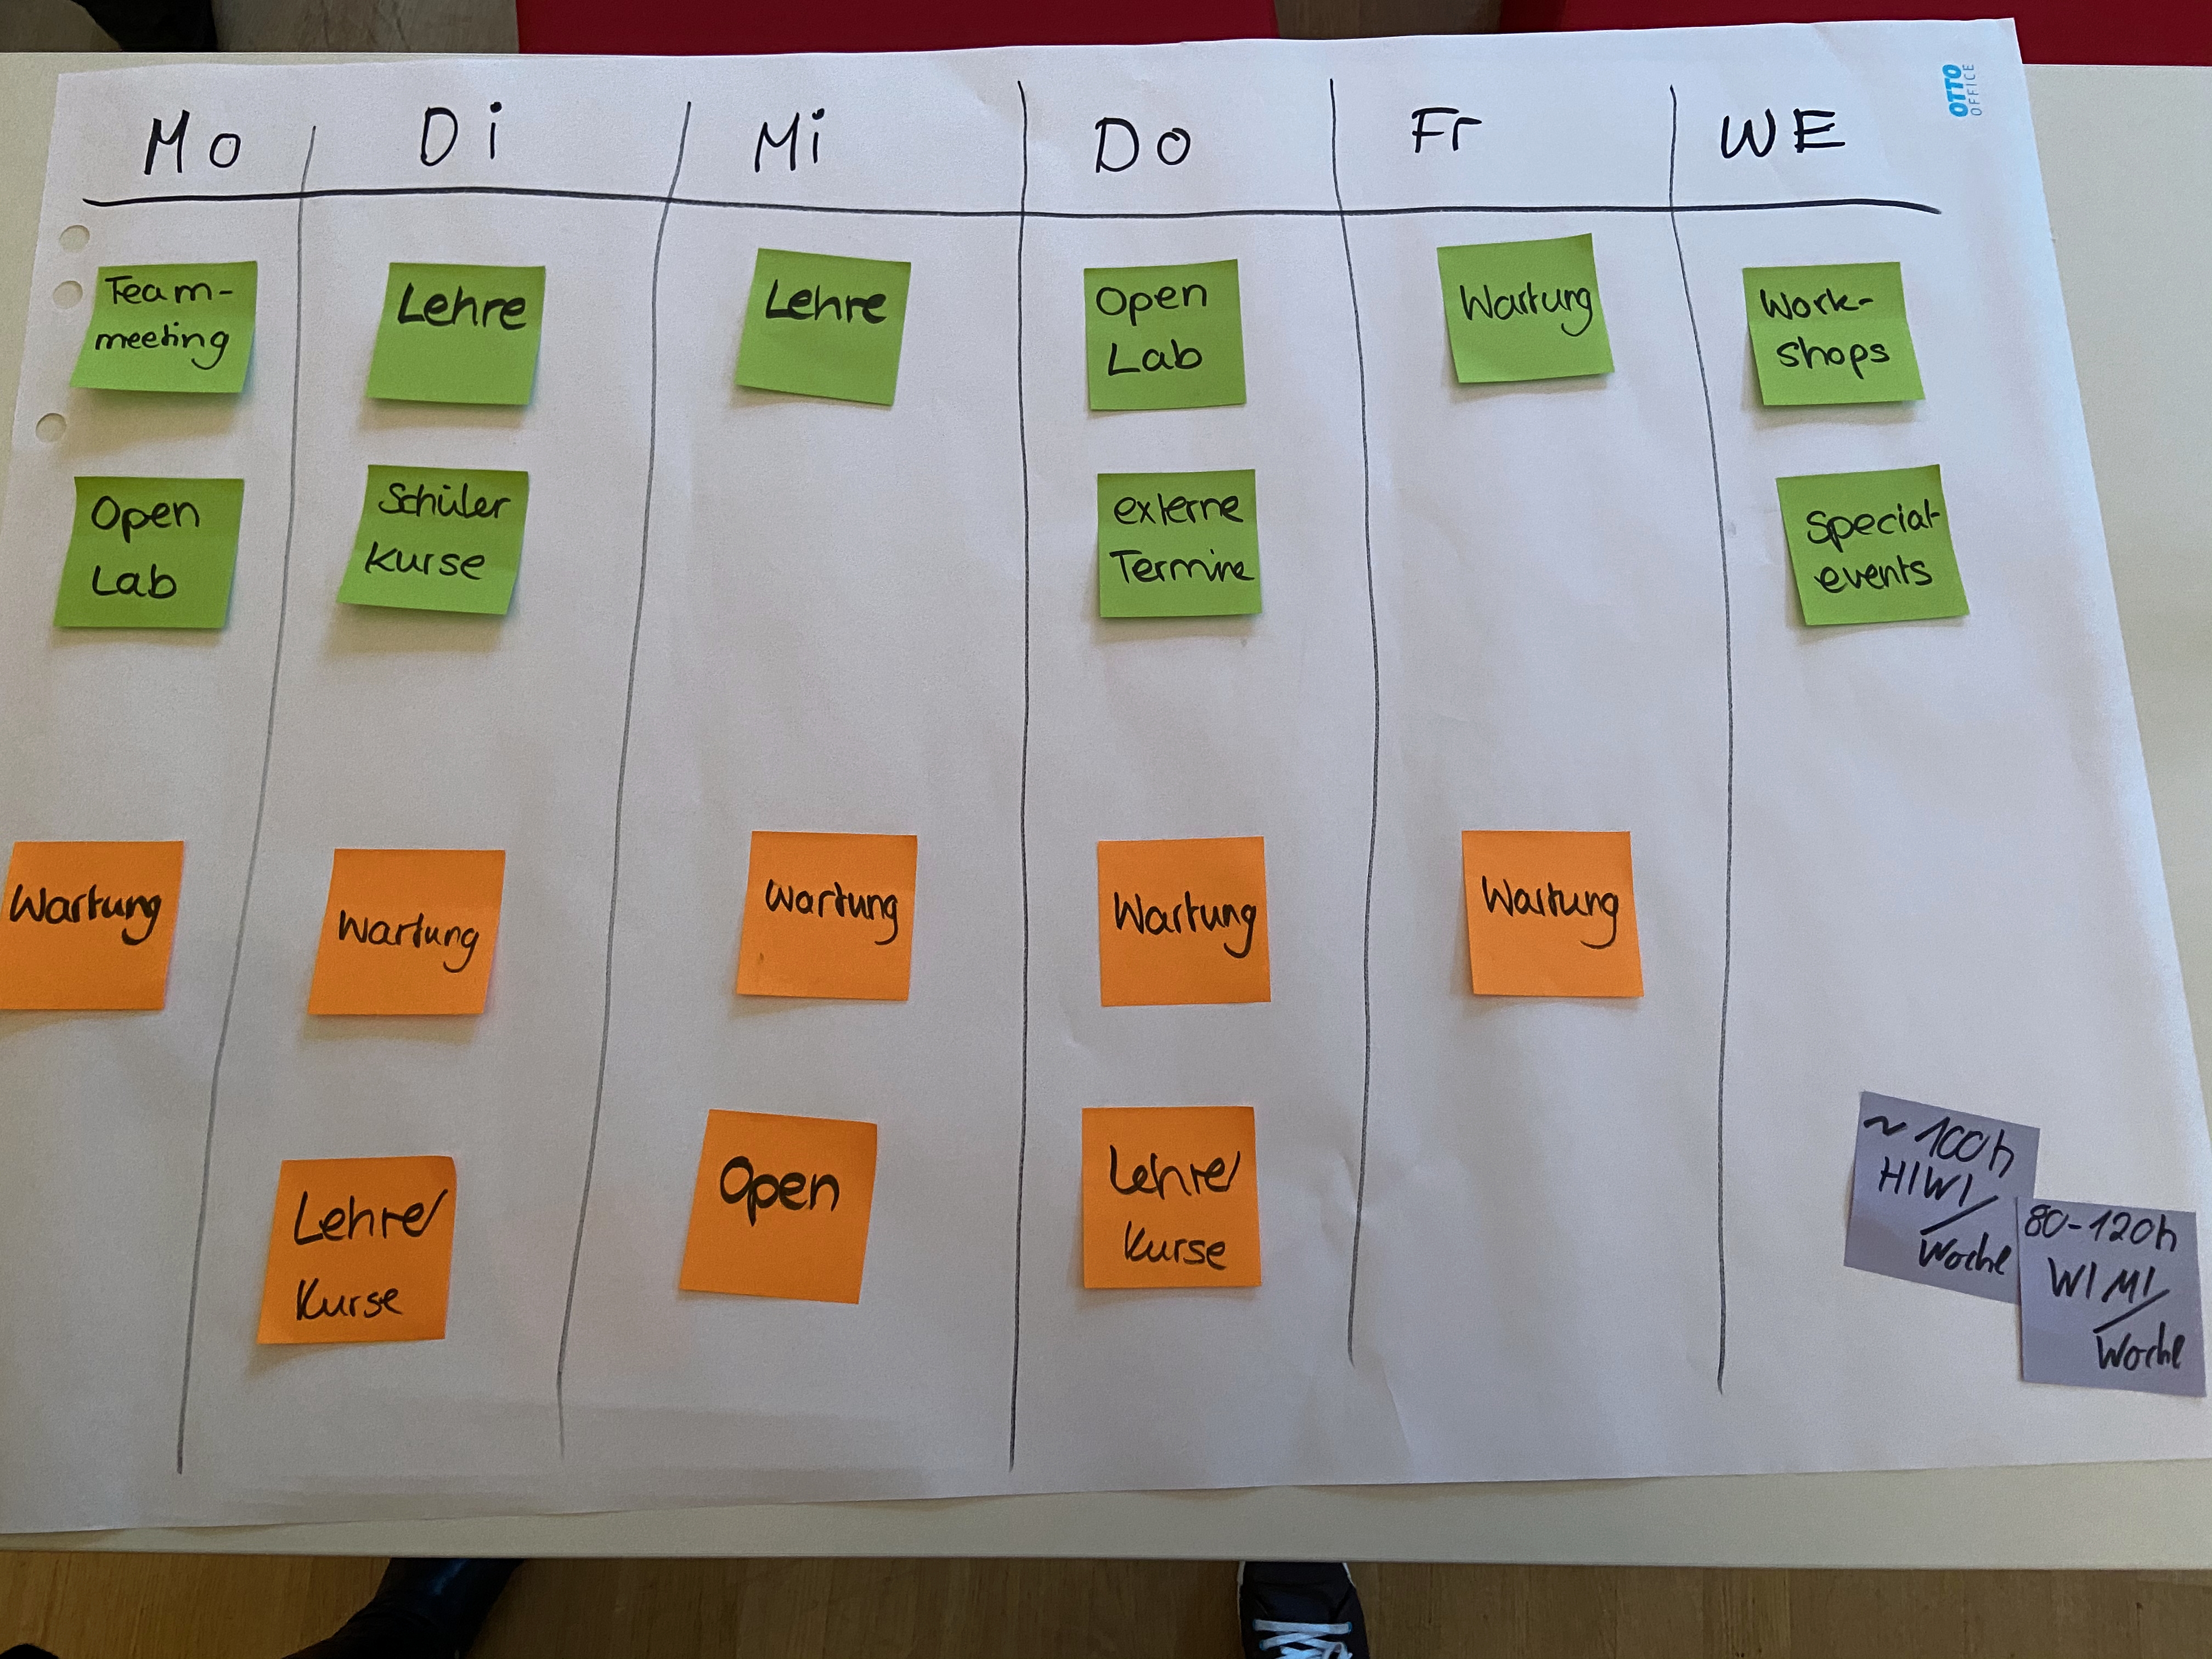 Mo Di Mi Do Fr WE
OTTO
OFFICE
Team-
meeting
Lehre
Lehre
Open
Lab
Wartung
Work-
shops
Open
Lab
Schüler
Kurse
externe
Termine
Special-
events
Wartung
Wartung
Wartung
Wartung
Wartung
Lehre/
Kurse
Open
Lehre/
Kurse
~ 100h
HIWI/
Woche
80-120h
WIMI/
Woche